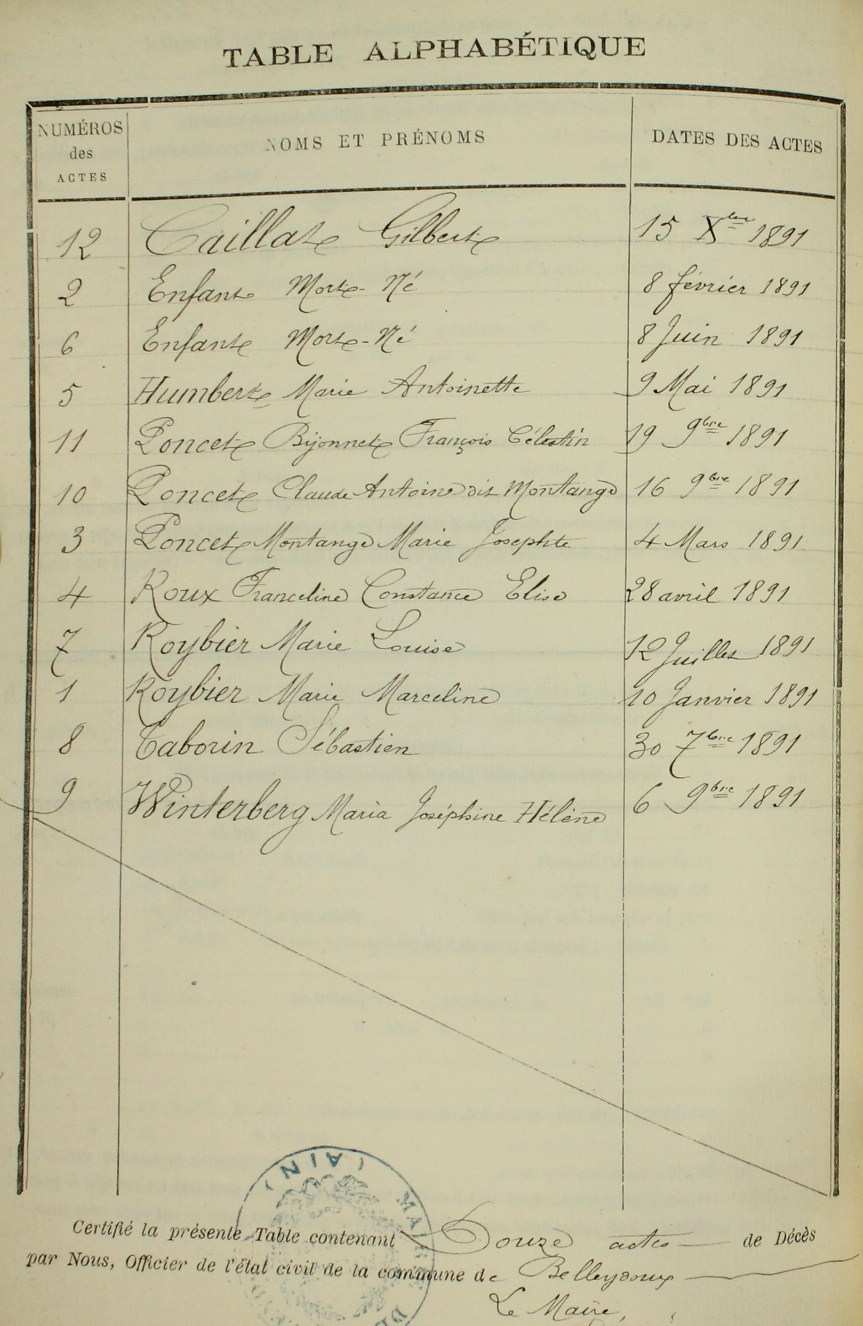 TABLE ALPHABÉTIQUE
NUMÉROS des ACTES NOMS ET PRÉNOMS DATES DES ACTES
12 Caillat Gilbert 15 Xbre 1891
2 Enfant Mort-Né 8 février 1891
6 Enfant Mort-Né 8 Juin 1891
5 Humbert Marie Antoinette 9 Mai 1891
11 Poncet Bijonnet François Célestin 19 9bre 1891
10 Poncet Claude Antoine dit Montange 16 9bre 1891
3 Poncet Montange Marie Josephte 4 Mars 1891
4 Roux Franceline Constance Elise 28 avril 1891
7 Roybier Marie Louise 12 Juillet 1891
1 Roybier Marie Marceline 10 Janvier 1891
8 Taborin Sébastien 30 7bre 1891
9 Winterberg Maria Joséphine Hélène 6 9bre 1891
(AIN)
MAIRIE DE
Certifié la présente Table contenant Douze actes de Décès
par Nous, Officier de l'état civil de la commune de Belleydoux
Le Maire,